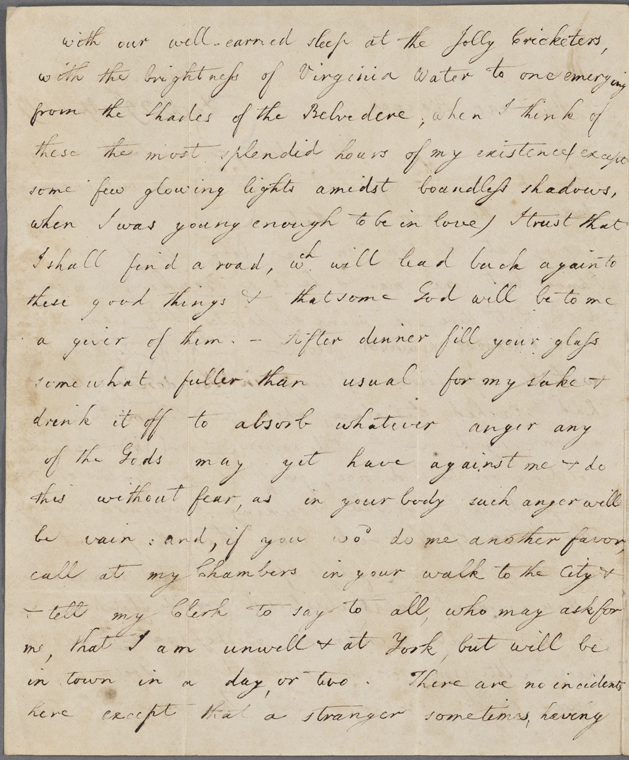 with our well-earned sleep at the Jolly Cricketers,
with the brightness of Virginia Water to one emerging
from the Shades of the Belvedere; when I think of
these the most splendid hours of my existence (except
some few glowing lights amidst boundless shadows,
when I was young enough to be in love) I trust that
I shall find a road, wch will lead back again to
these good things & that some God will be to me
a giver of them. - After dinner fill your glass
somewhat fuller than usual for my sake &
drink it off to absorb whatever anger any
of the Gods may yet have against me & do
this without fear, as in your body such anger will
be vain: and, if you wod do me another favor,
call at my Chambers in your walk to the City &
& tell my Clerk to say to all, who may ask for
me, that I am unwell & at York, but will be
in town in a day, or two. There are no incidents
here except that a stranger sometimes, having